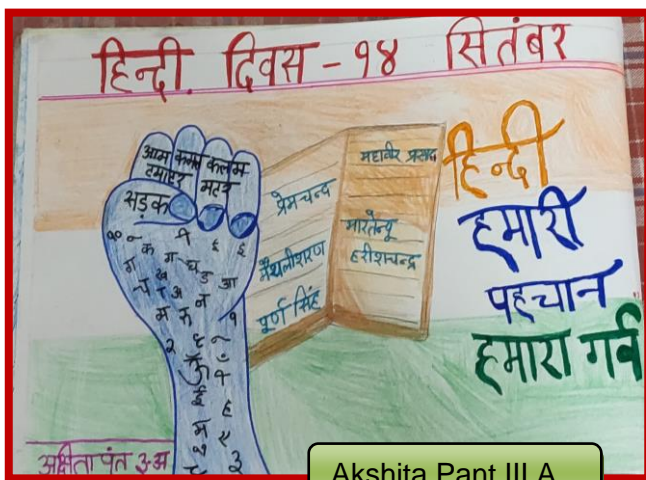 हिन्दी दिवस - १४ सितंबर
आम कमल कलम
टमाटर मटर
सड़क
प्रेमचन्द
मैथलीशरण
पूर्ण सिंह
महावीर प्रसाद
भारतेन्दू
हरीशचन्द्र
हिन्दी
हमारी
पहचान
हमारा गर्व
अक्षीता पंत ३-अ
Akshita Pant III A